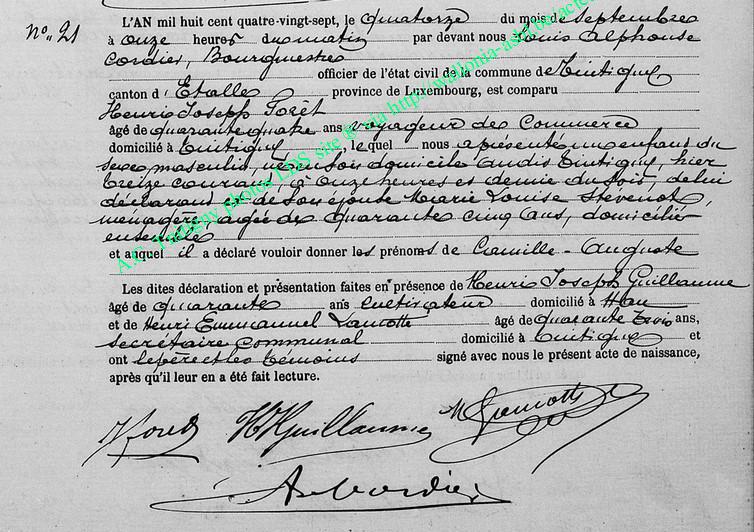 L'AN mil huit cent quatre-vingt-sept, le quatorze du mois de septembre
N° 21
à onze heures du matin par devant nous Louis Alphonse
Cordier, Bourgmestre
officier de l'état civil de la commune de Tintigny
canton d'Etalle province de Luxembourg, est comparu
Henri Joseph Forêt
âgé de quarante quatre ans voyageur de Commerce
domicilié à Tintigny, lequel nous a présenté un enfant du
sexe masculin, né en son domicile audit Tintigny, hier
treize courant, à onze heures et demie du soir, de lui
déclarant et de son épouse Marie Louise Stevenot,
ménagère, âgée de quarante cinq ans, domiciliés
ensemble
et auquel il a déclaré vouloir donner les prénoms de Camille-Auguste
Les dites déclaration et présentation faites en présence de Henri Joseph Guillaume
âgé de quarante ans cultivateur domicilié à Han
et de Henri Emmanuel Lamotte âgé de quarante trois ans,
secrétaire communal domicilié à Tintigny et
ont le père et les témoins signé avec nous le présent acte de naissance,
après qu'il leur en a été fait lecture.
HJ Guillaume
Lamotte
A. Cordier
A.C. Tintigny photos LDS site © via http://wallonia-asbl.be/actes